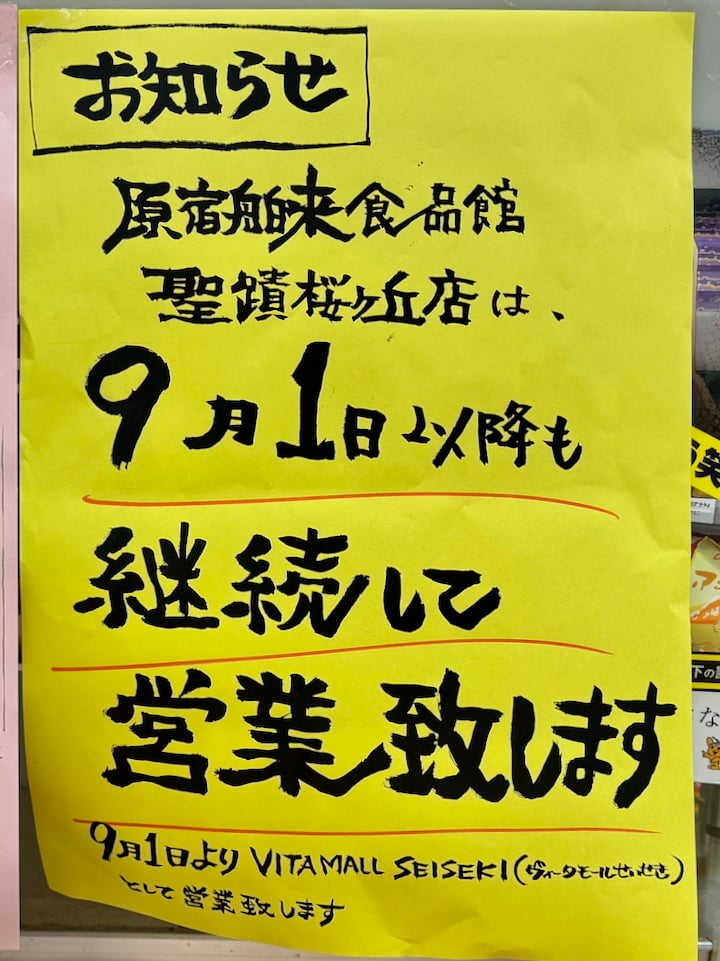 お知らせ
原宿舶来食品館
聖蹟桜ヶ丘店は、
9月1日以降も
継続して
営業致します
9月1日より VITAMALL SEISEKI(ヴィータモールせいせき)
として営業致します
笑
下の
な